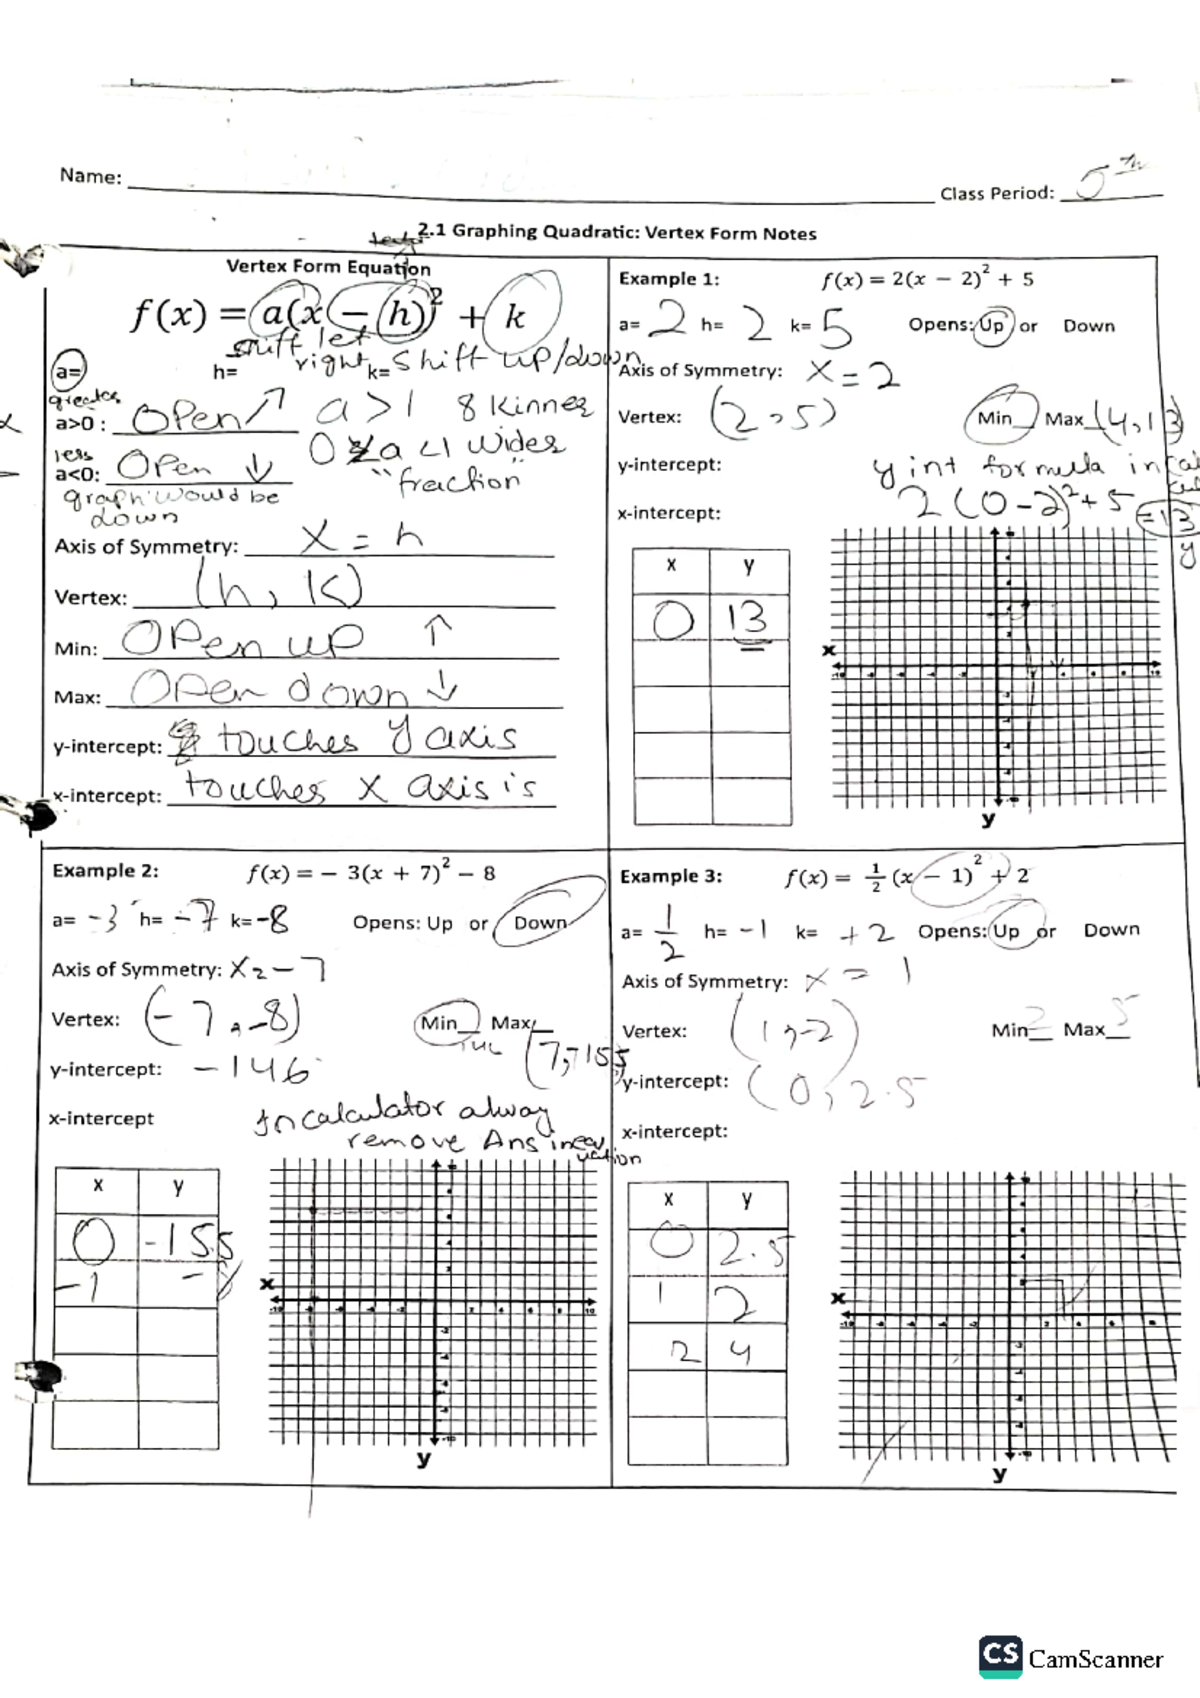 Name:
Class Period: 5th
2.1 Graphing Quadratic: Vertex Form Notes
Vertex Form Equation
f(x) = a(x - h)² + k
shift left
a= h= right k= Shift up/down
greater
a>0 : Open ↗ a > 1 skinner
less 0 < a < 1 wider
a<0: Open ↓ "fraction"
graph would be
down
Axis of Symmetry: X = h
Vertex: (h, K)
Min: Open up ↑
Max: Open down ↓
y-intercept: touches y axis
x-intercept: touches X axis is
Example 1: f(x) = 2(x - 2)² + 5
a= 2 h= 2 k= 5 Opens: Up or Down
Axis of Symmetry: X = 2
Vertex: (2, 5) Min Max (4,13)
y-intercept: y int formula in
x-intercept: 2(0-2)²+5 =13
y
x y
0 13
x
y
Example 2: f(x) = - 3(x + 7)² - 8
a= -3 h= -7 k= -8 Opens: Up or Down
Axis of Symmetry: X = -7
Vertex: (-7, -8) Min Max
y-intercept: -146
x-intercept In calculator alway
remove Ans in
x y
0 -155
-1 -8
x
y
Example 3: f(x) = 1/2 (x - 1)² + 2
a= 1/2 h= -1 k= +2 Opens: Up or Down
Axis of Symmetry: x = 1
Vertex: (1, -2) Min 2 Max 5
y-intercept: (0, 2.5
x-intercept:
x y
0 2.5
1 2
2 4
x
y
CS CamScanner